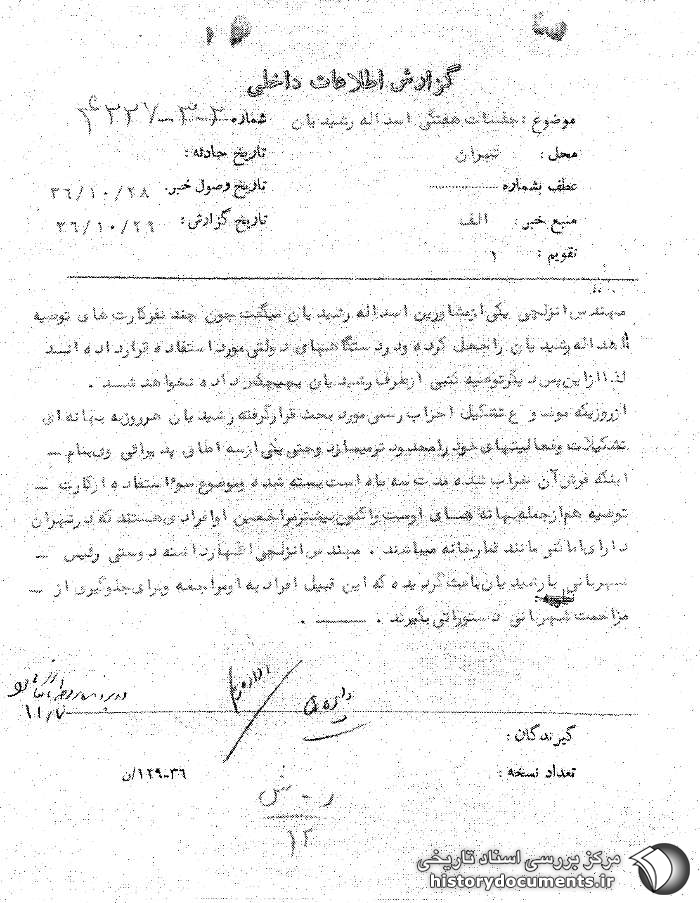 گزارش اطلاعات داخلی
موضوع : جلسات هفتگی اسداله رشیدیان
شماره
محل : تهران
تاریخ حادثه :
عطف بشماره
تاریخ وصول خبر. ۳۶/۱۰/۲۸
منبع خبر : الف
تاریخ گزارش : ۳۶/۱۰/۲۹
تقویم : ۱
مهندس انزلچی یکی از مشاورین اسداله رشیدیان میگفت چون چند نفر کارت های توصیه
اسداله رشیدیان را جعل کرده و در دستگاههای دولتی مورد استفاده قرار داده اند
لذا از این پس دیگر توصیه کتبی از طرف رشیدیان بهیچکس داده نخواهد شد .
از روزیکه موضوع تشکیل احزاب رسمی مورد بحث قرار گرفته رشیدیان هر روز به بهانه ای
تشکیلات و فعالیتهای خود را محدود تر میسازد و حتی یکی از سه اطاق پذیرائی وی بنام —
اینکه فرش آن خراب شده مدت سه ماه است بسته شده و موضوع سوء استفاده از کارت —
توصیه هم از جمله بهانه های اوست و اکنون بیشتر مراجعین او افرادی هستند که در تهران
دارای اماکنی مانند قمارخانه میباشند . مهندس انزلچی اظهار داشته دوستی رئیس —
شهربانی با رشیدیان باعث گردیده که این قبیل افراد به او مراجعه و برای جلوگیری از —
مزاحمت شهربانی دستوراتی بگیرند . ——— .
اداره
گیرندگان :
تعداد نسخه :
۳۶-۱۲۹/ن
ر - ش
۱۲
مرکز بررسی اسناد تاریخی
historydocuments.ir